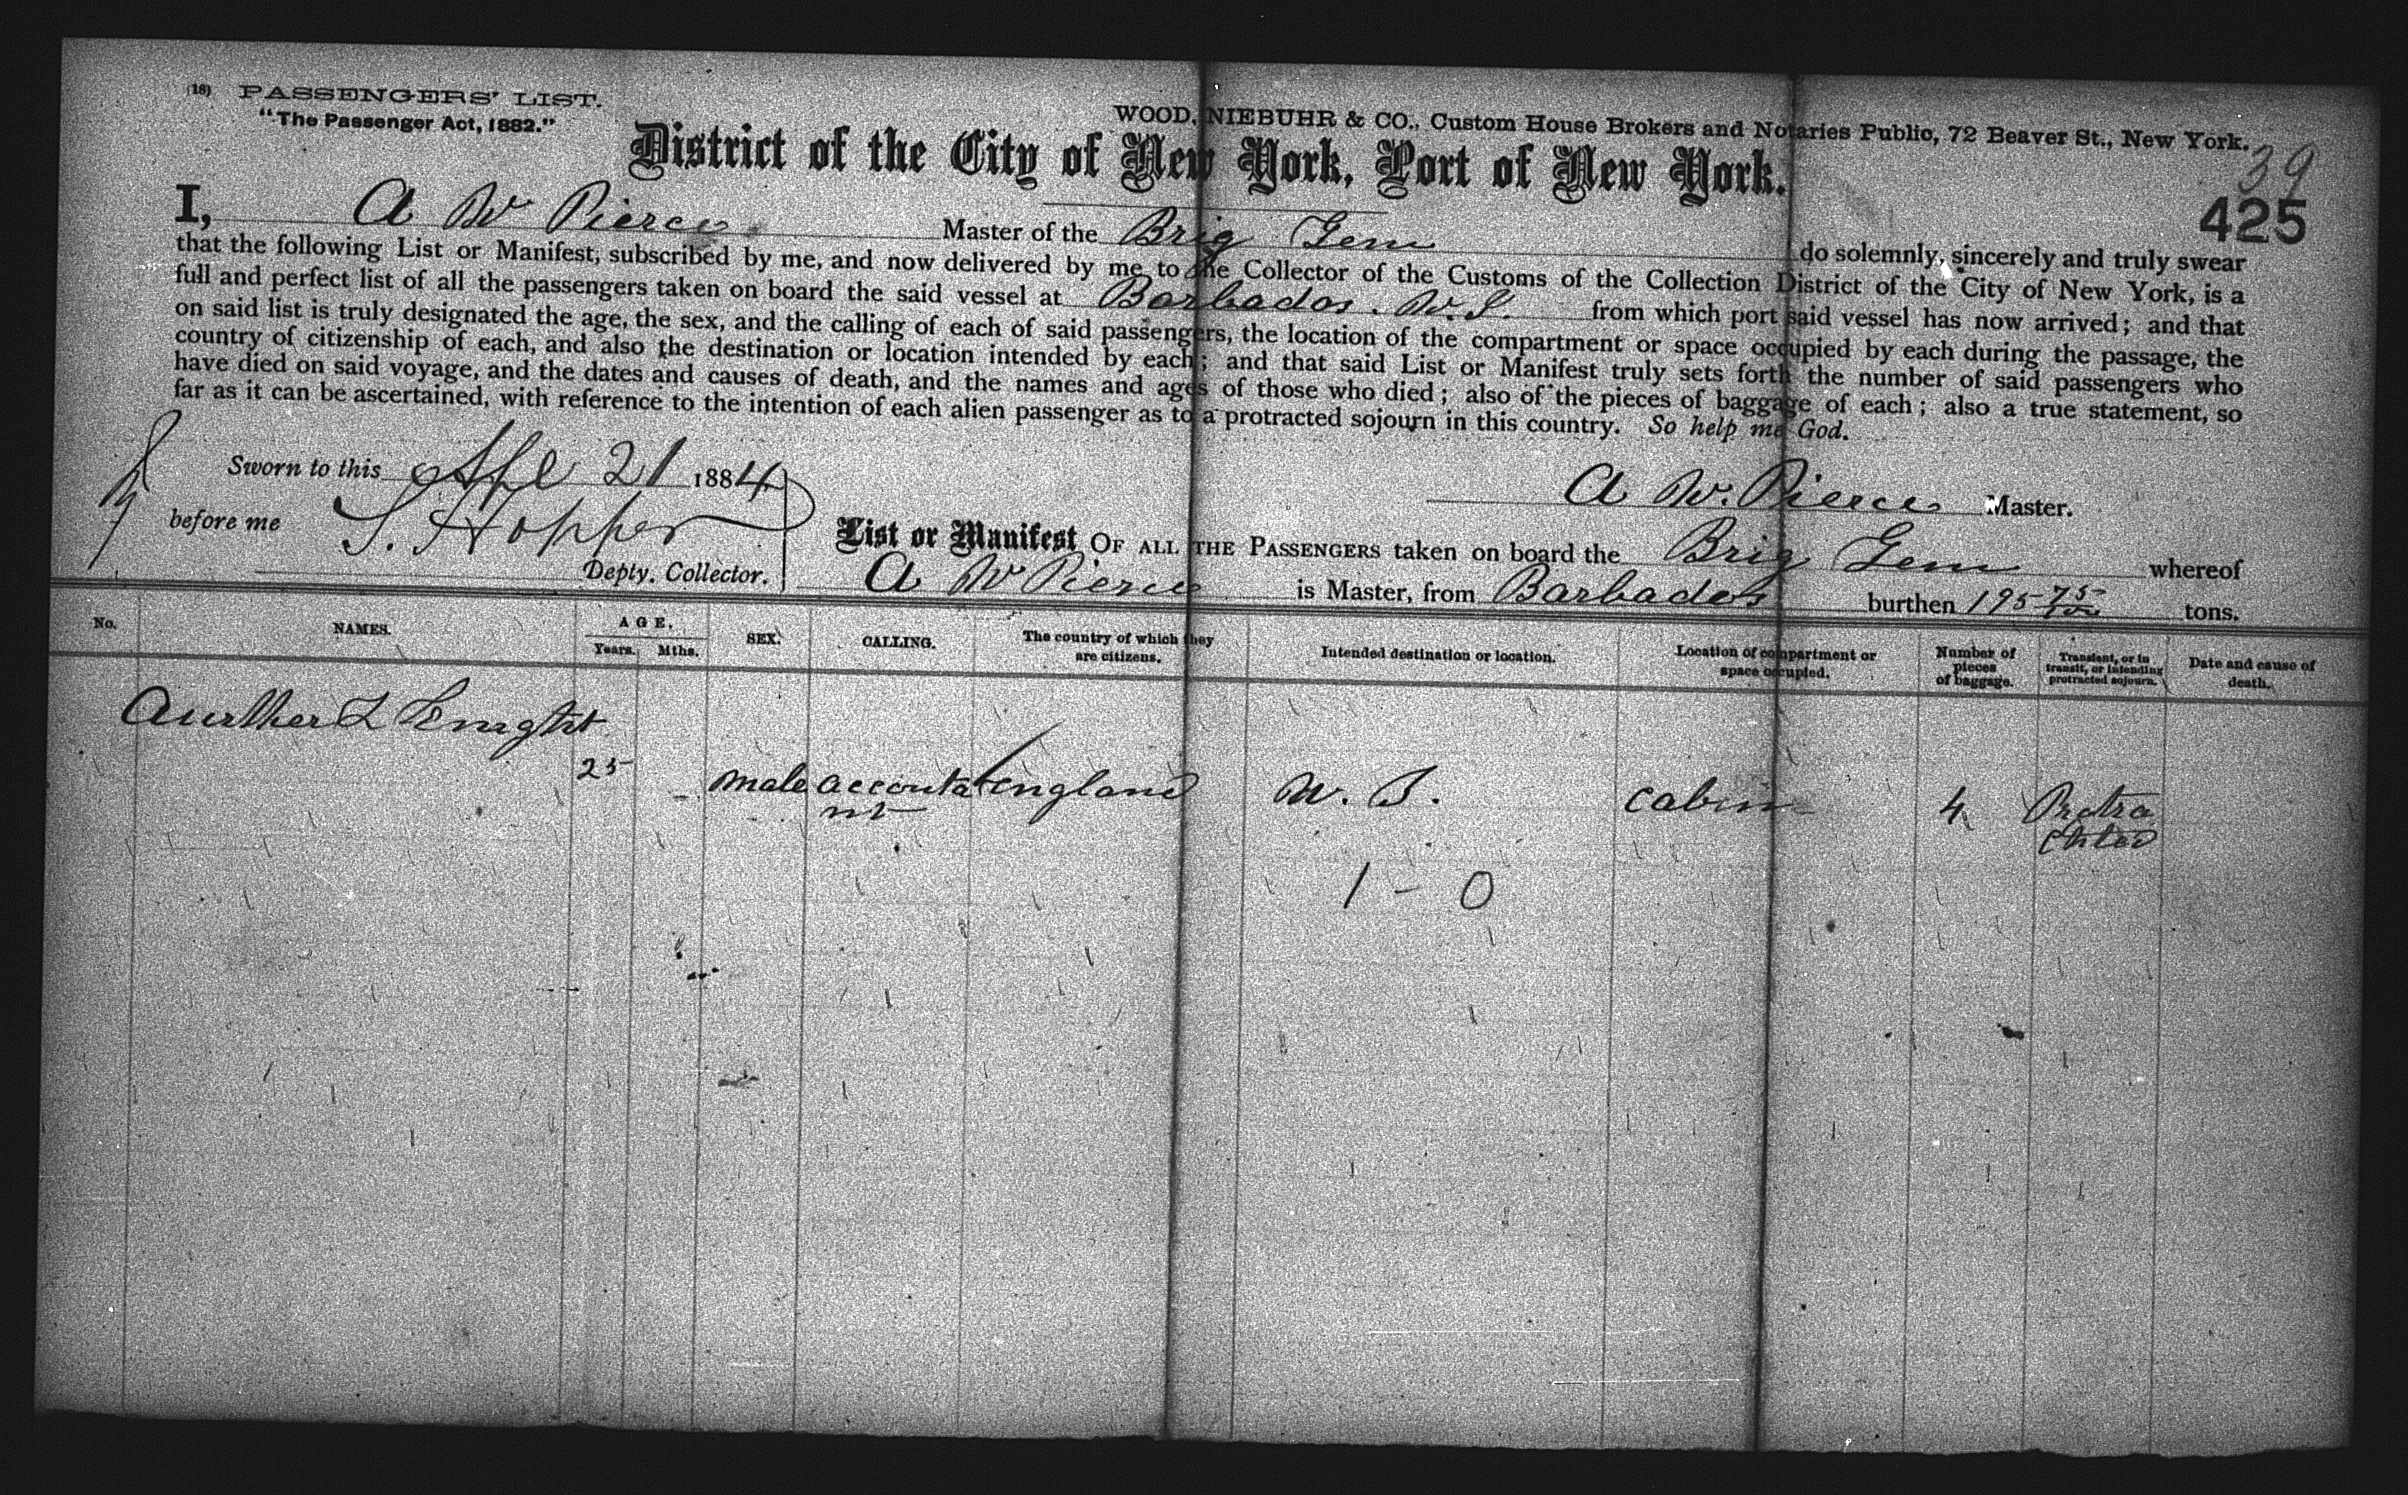 (18) PASSENGERS' LIST.
"The Passenger Act, 1882."
WOOD, NIEBUHR & CO., Custom House Brokers and Notaries Public, 72 Beaver St., New York.
District of the City of New York, Port of New York.
39
425
I, A W Pierce Master of the Brig Gem do solemnly, sincerely and truly swear
that the following List or Manifest, subscribed by me, and now delivered by me to the Collector of the Customs of the Collection District of the City of New York, is a
full and perfect list of all the passengers taken on board the said vessel at Barbados. W.I. from which port said vessel has now arrived; and that
on said list is truly designated the age, the sex, and the calling of each of said passengers, the location of the compartment or space occupied by each during the passage, the
country of citizenship of each, and also the destination or location intended by each; and that said List or Manifest truly sets forth the number of said passengers who
have died on said voyage, and the dates and causes of death, and the names and ages of those who died; also of the pieces of baggage of each; also a true statement, so
far as it can be ascertained, with reference to the intention of each alien passenger as to a protracted sojourn in this country. So help me God.
Sworn to this Apl 21 1884
A W. Pierce Master.
before me S. Hopper
Depty. Collector.
List or Manifest OF ALL THE PASSENGERS taken on board the Brig Gem whereof
A W Pierce is Master, from Barbados burthen 195 75/100 tons.
No. NAMES. AGE. Years. Mths. SEX. CALLING. The country of which they are citizens. Intended destination or location. Location of compartment or space occupied. Number of pieces of baggage. Transient, or in transit, or intending protracted sojourn. Date and cause of death.
Aurther L Knight
25 - male accounta England W. I. cabin 4 Protra
nt cted
1 - 0